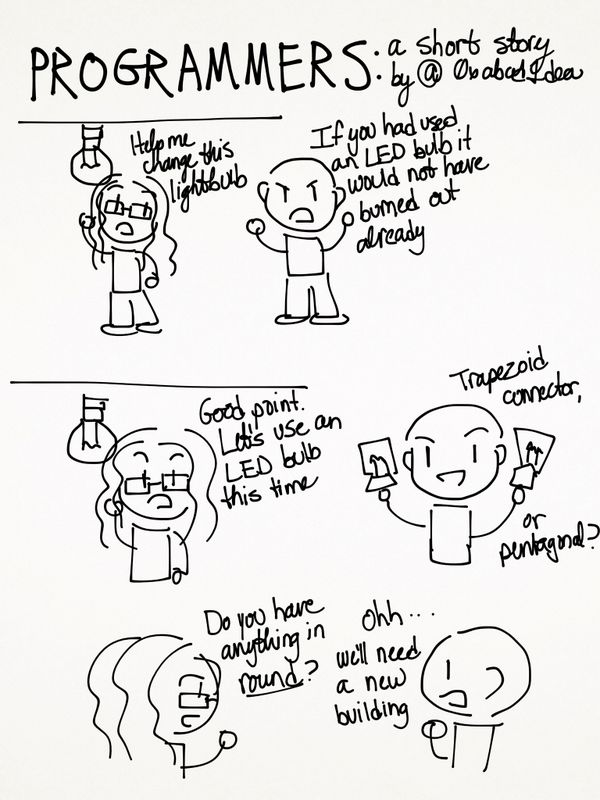 PROGRAMMERS: a short story
by @0xabad1dea
Help me
change this
lightbulb
If you had used
an LED bulb it
would not have
burned out
already
Good point.
Let's use an
LED bulb
this time
Trapezoid
connector,
or
pentagonal?
Do you have
anything in
round?
Ohh...
we'll need
a new
building